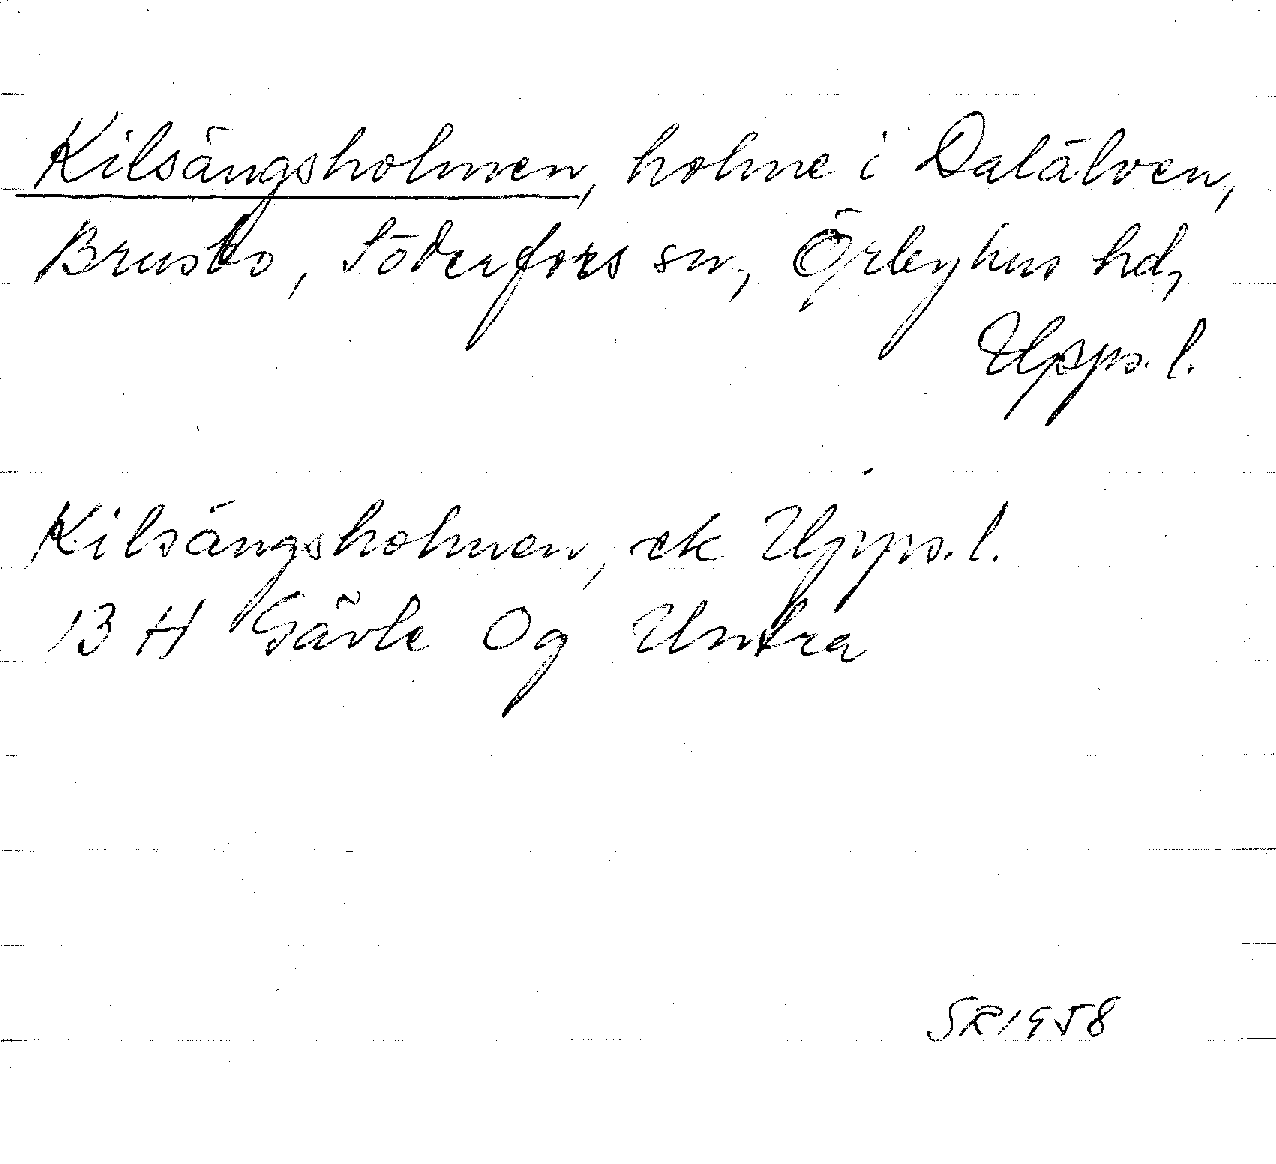 Kilsängsholmen, holme i Dalälven,
Brusbo, Söderfors sn, Örbyhus hd,
Upps. l.
Kilsängsholmen, ek Upps. l.
13 H Gävle Og Untra
SR 1958